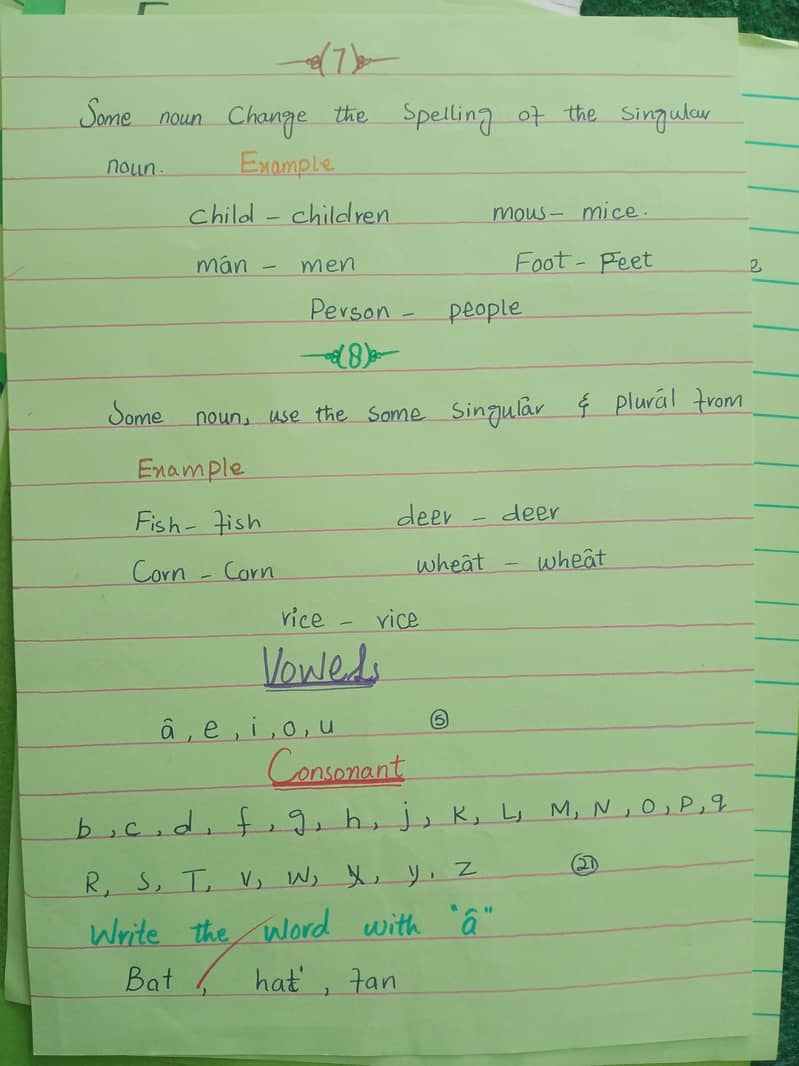 (7)
Some noun Change the Spelling of the singular
noun. Example
child - children mous - mice.
mán - men Foot - Feet
Person - people
(8)
Some noun, use the some singulâr & plurál from
Example
Fish - fish deer - deer
Corn - Corn wheât - wheât
rice - rice
Vowels
â, e, i, o, u ⑤
Consonant
b, c, d, f, g, h, j, K, L, M, N, O, P, q
R, S, T, V, W, X, y, Z ㉑
Write the word with "â"
Bat, hat, fan
e